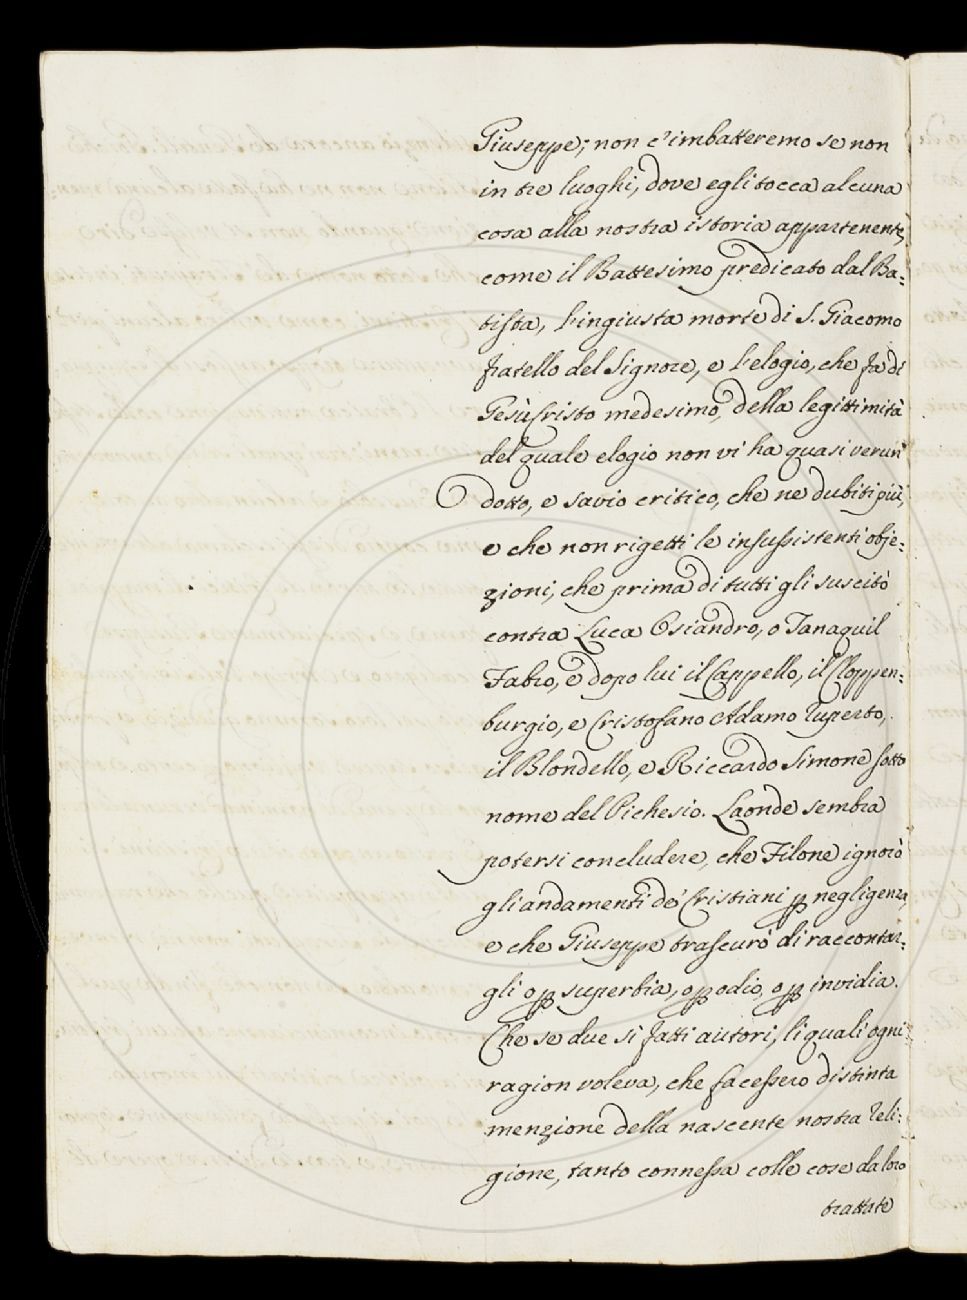 Giuseppe; non c'imbatteremo se non
in tre luoghi, dove egli tocca alcuna
cosa alla nostra istoria appartenente,
come il Battesimo predicato dal Ba:
tista, l'ingiusta morte di S. Giacomo
fratello del Signore, e l'elogio, che fa di
Gesù Cristo medesimo, della legittimità
del quale elogio non vi ha quasi verun
dotto, e savio critico, che ne dubiti più,
e che non rigetti le insussistenti obje:
zioni, che prima di tutti gli suscitò
contra Luca Osiandro, o Tanaquil
Fabro, e dopo lui il Cappello, il Cloppen:
burgio, e Cristofano Adamo Ruperto,
il Blondello, e Riccardo Simone sotto
nome del Pichesio. Laonde sembra
potersi concludere, che Filone ignorò
gli andamenti de' Cristiani ꝑ negligenza,
e che Giuseppe trascurò di raccontar:
gli o ꝑ superbia, o ꝑ odio, o ꝑ invidia.
Che se due sì fatti autori, li quali ogni
ragion voleva, che facessero distinta
menzione della nascente nostra Reli:
gione, tanto connessa colle cose da loro
trattate